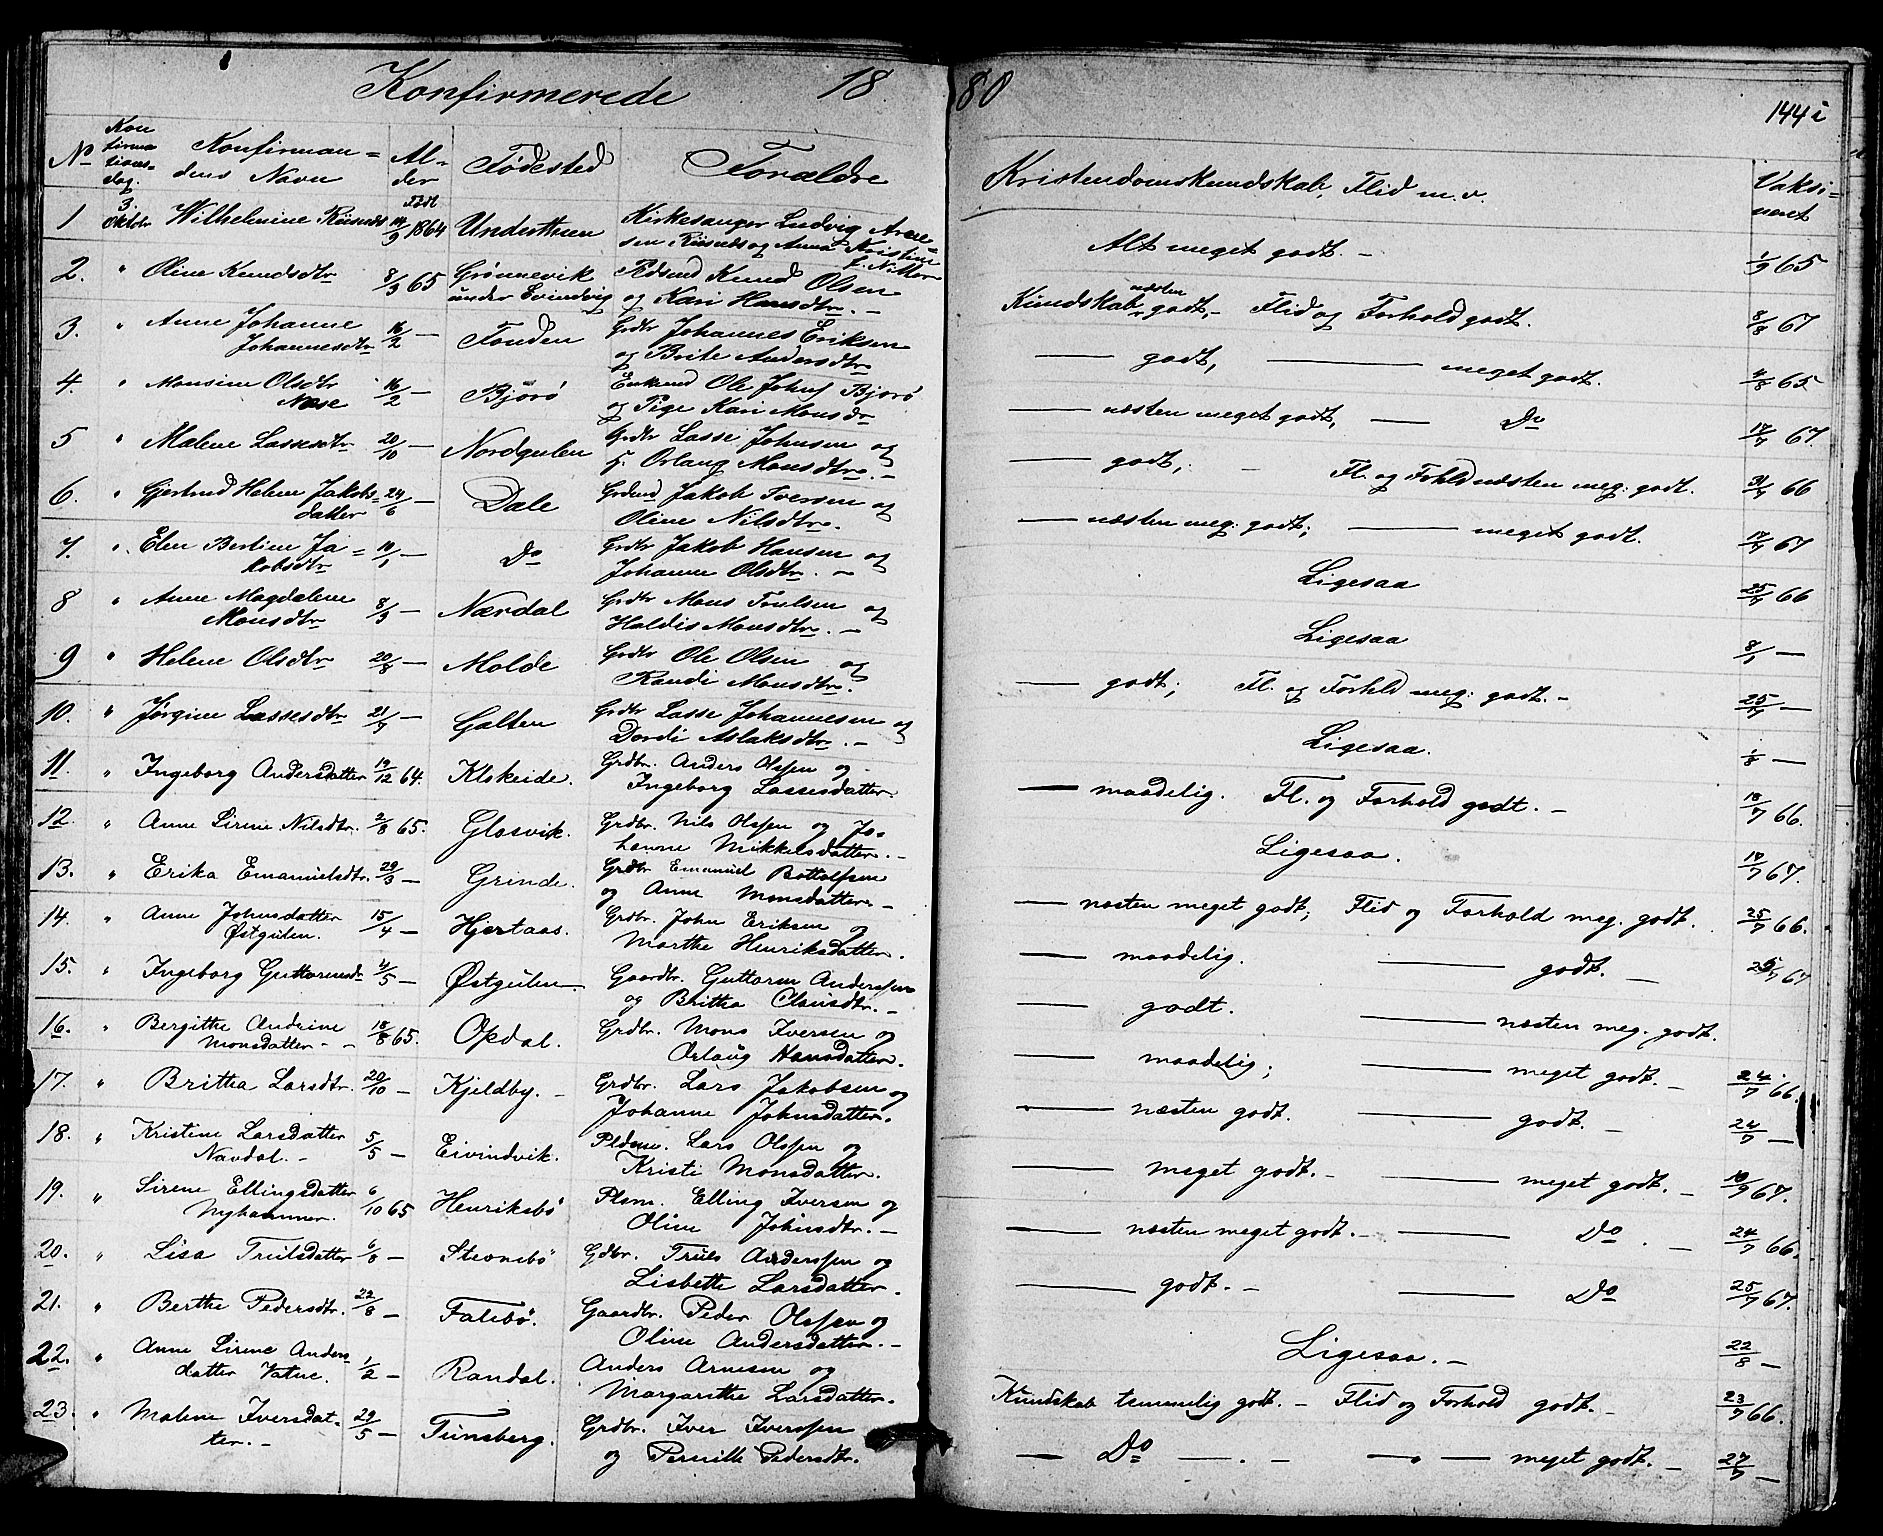 Konfirmerede 1880
144 i
No
Konfirmationsdag.
Konfirmandens Navn
Alder
Født
Fødested
Forældre
Kristendomskundskab, Flid m. v.
Vaksineret
1 3. Oktobr Wilhelmine Risnes 14/9 1864 Underthun Kirkesanger Ludvig Arnesen Risnes og Anna Kristine f. Nitter Alt meget godt. - 1/9 65
2. " Oline Knudsdtr 8/3 65 Grønnevik under Evindvig Pldsmd Knud Olsen og Kari Hansdtr. - Kundskab næsten godt, - Flid og Forhold godt. 8/8 67
3. " Anne Johanne Johannesdtr 16/2 — Fonden Grdbr Johannes Eriksen og Brite Andersdtr — godt, — meget godt. 4/8 65
4. " Monsine Olsdtr Nese 16/2 — Bjørø Enkemd Ole Johns Bjorö og Pige Kari Monsdr — næsten meget godt, — Do 17/7 67.
5 " Malene Lassesdtr 20/10 — Nordgulen Grdbr Lasse Johnsen og H. Orlaug Monsdtr. - — godt, - Fl. og Fohld næsten meg: godt. 31/7 66
6. " Gjertrud Helene Jakobsdatter 24/6 — Dale Grdmd Jakob Iversen og Oline Nilsdtr. — næsten meg: godt; — meget godt. 17/7 67
7. " Elen Bertine Jakobsdtr 10/1 — Do Grdbr Jakob Hansen og Johanne Olsdtr. - Ligesaa 25/7 66
8 " Anne Magdalene Monsdtr 8/3 — Nærdal Grdbr Mons Troelsen og Haldis Monsdtr. - Ligesaa 8/1 —
9 " Helene Olsdtr 20/8 — Molde Grdbr Ole Olsen og Randi Monsdtr. — godt; Fl. og Forhld meg: godt. - 25/7 —
10. " Jørgine Lassesdtr 21/7 — Galten Grdbr Lasse Johannesen og Dordi Aslaksdtr. - Ligesaa. 1/8 —
11. " Ingeborg Andersdatter 19/12 64. Klokeide. Grdbr. Anders Olssen og Ingeborg Lassesdatter. — maadelig. Fl. og Forhold godt. - 18/7 66.
12. " Anne Sirene Nilsdtr. 2/8 65. Glosvik. Grdbr. Nils Olssen og Johanne Mikkelsdatter. - Ligesaa. 17/7 67.
13. " Erika Emanuelsdtr. 29/3 — Grinde. Grdbr Emanuel Bottolfsen og Anne Monsdatter - — næsten meget godt; Flid og Forhold meg. godt. 25/7 66.
14. " Anne Johnsdatter Østgulen. 15/4 — Hjertaas. Grdbr. John Eriksen og Marthe Henriksdatter. — maadelig. — godt. - 25/7 67
15. " Ingeborg Guttormsd. 4/5 — Østgulen. Gaardbr. Guttorm Anderssen og Brittha Clausdtr. - — godt. — næsten meg. godt.
16. " Bergitthe Andrine Monsdatter - - 18/8 65. Opdal. Grdbr. Mons Iversen og Orlaug Hansdatter. — maadelig; — meget godt. - 24/7 66.
17. " Brittha Larsdtr. 20/10 — Kjeldby. - Grdbr. Lars Jakobsen og Johanne Johnsdatter. — næsten godt. — godt. - 24/7 —
18. " Kristine Larsdatter Navdal. - 5/5 — Eivindvik. Pldsm. Lars Olssen og Kristi Monsdatter. — meget godt. - — meget godt. - 10/9 67.
19. " Sirene Ellingsdatter Nyhammer. 6/10 65 Henriksbö Plsm. Elling Iversen og Oline Johnsdtr. - — næsten meget godt. - — Do. - 24/7 66.
20. " Lisa Trulsdatter 6/8 — Stevnebö Gdbr. Truls Anderssen og Lisbette Larsdatter. — godt. - — Do 25/7 67.
21. " Berthe Pedersdtr. 22/8 — Falebö. Gaardbr. Peder Olssen og Oline Andersdatter. - Ligesaa. - 22/8 —
22. " Anne Sirene Andersdatter Vatne. 1/2 — Randal. Anders Arnesen og Margarethe Larsdatter. Kundskab temmelig godt. - Flid og Forhold godt. - 23/7 66.
23. " Malene Iversdatter. - 29/5 — Tunsberg. Grdbr. Iver Iverssen og Pernille Pedersdtr. — Do — . - — " — meget godt. - 27/7 —